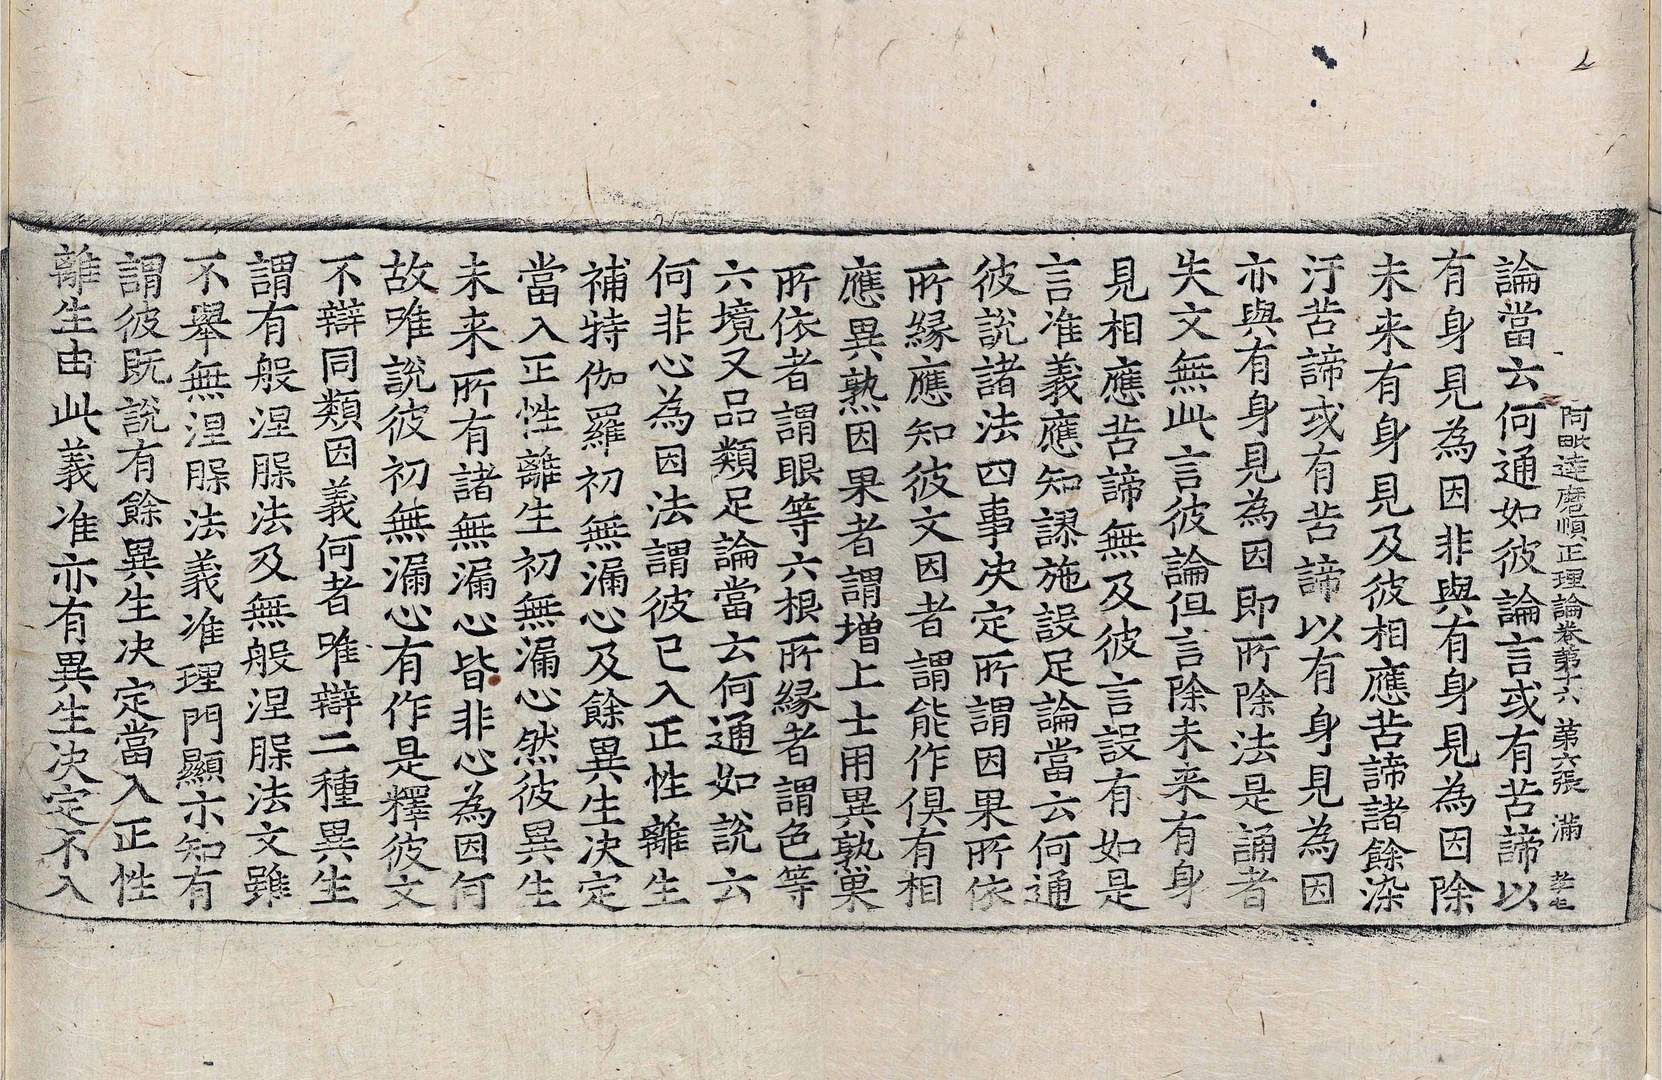 阿毗達磨順正理論卷第十六 第六張 滿
論當云何通如彼論言或有苦諦以
有身見為因非與有身見為因除
未来有身見及彼相應苦諦諸餘染
汙苦諦或有苦諦以有身見為因
亦與有身見為因即所除法是誦者
失文無此言彼論但言除未来有身
見相應苦諦無及彼言設有如是
言准義應知謬施設足論當云何通
彼說諸法四事决定所謂因果所依
所緣應知彼文因者謂能作俱有相
應異熟因果者謂增上士用異熟果
所依者謂眼等六根所緣者謂色等
六境又品類足論當云何通如說云
何非心為因法謂彼已入正性離生
補特伽羅初無漏心及餘異生决定
當入正性離生初無漏心然彼異生
未来所有諸無漏心皆非心為因何
故唯說彼初無漏心有作是釋彼文
不辯同類因義何者唯辯二種異生
謂有般涅脲法及無般涅脲法文雖
不舉無涅脲法義准理門顯亦知有
謂彼既說有餘異生决定當入正性
離生由此義准亦有異生决定不入